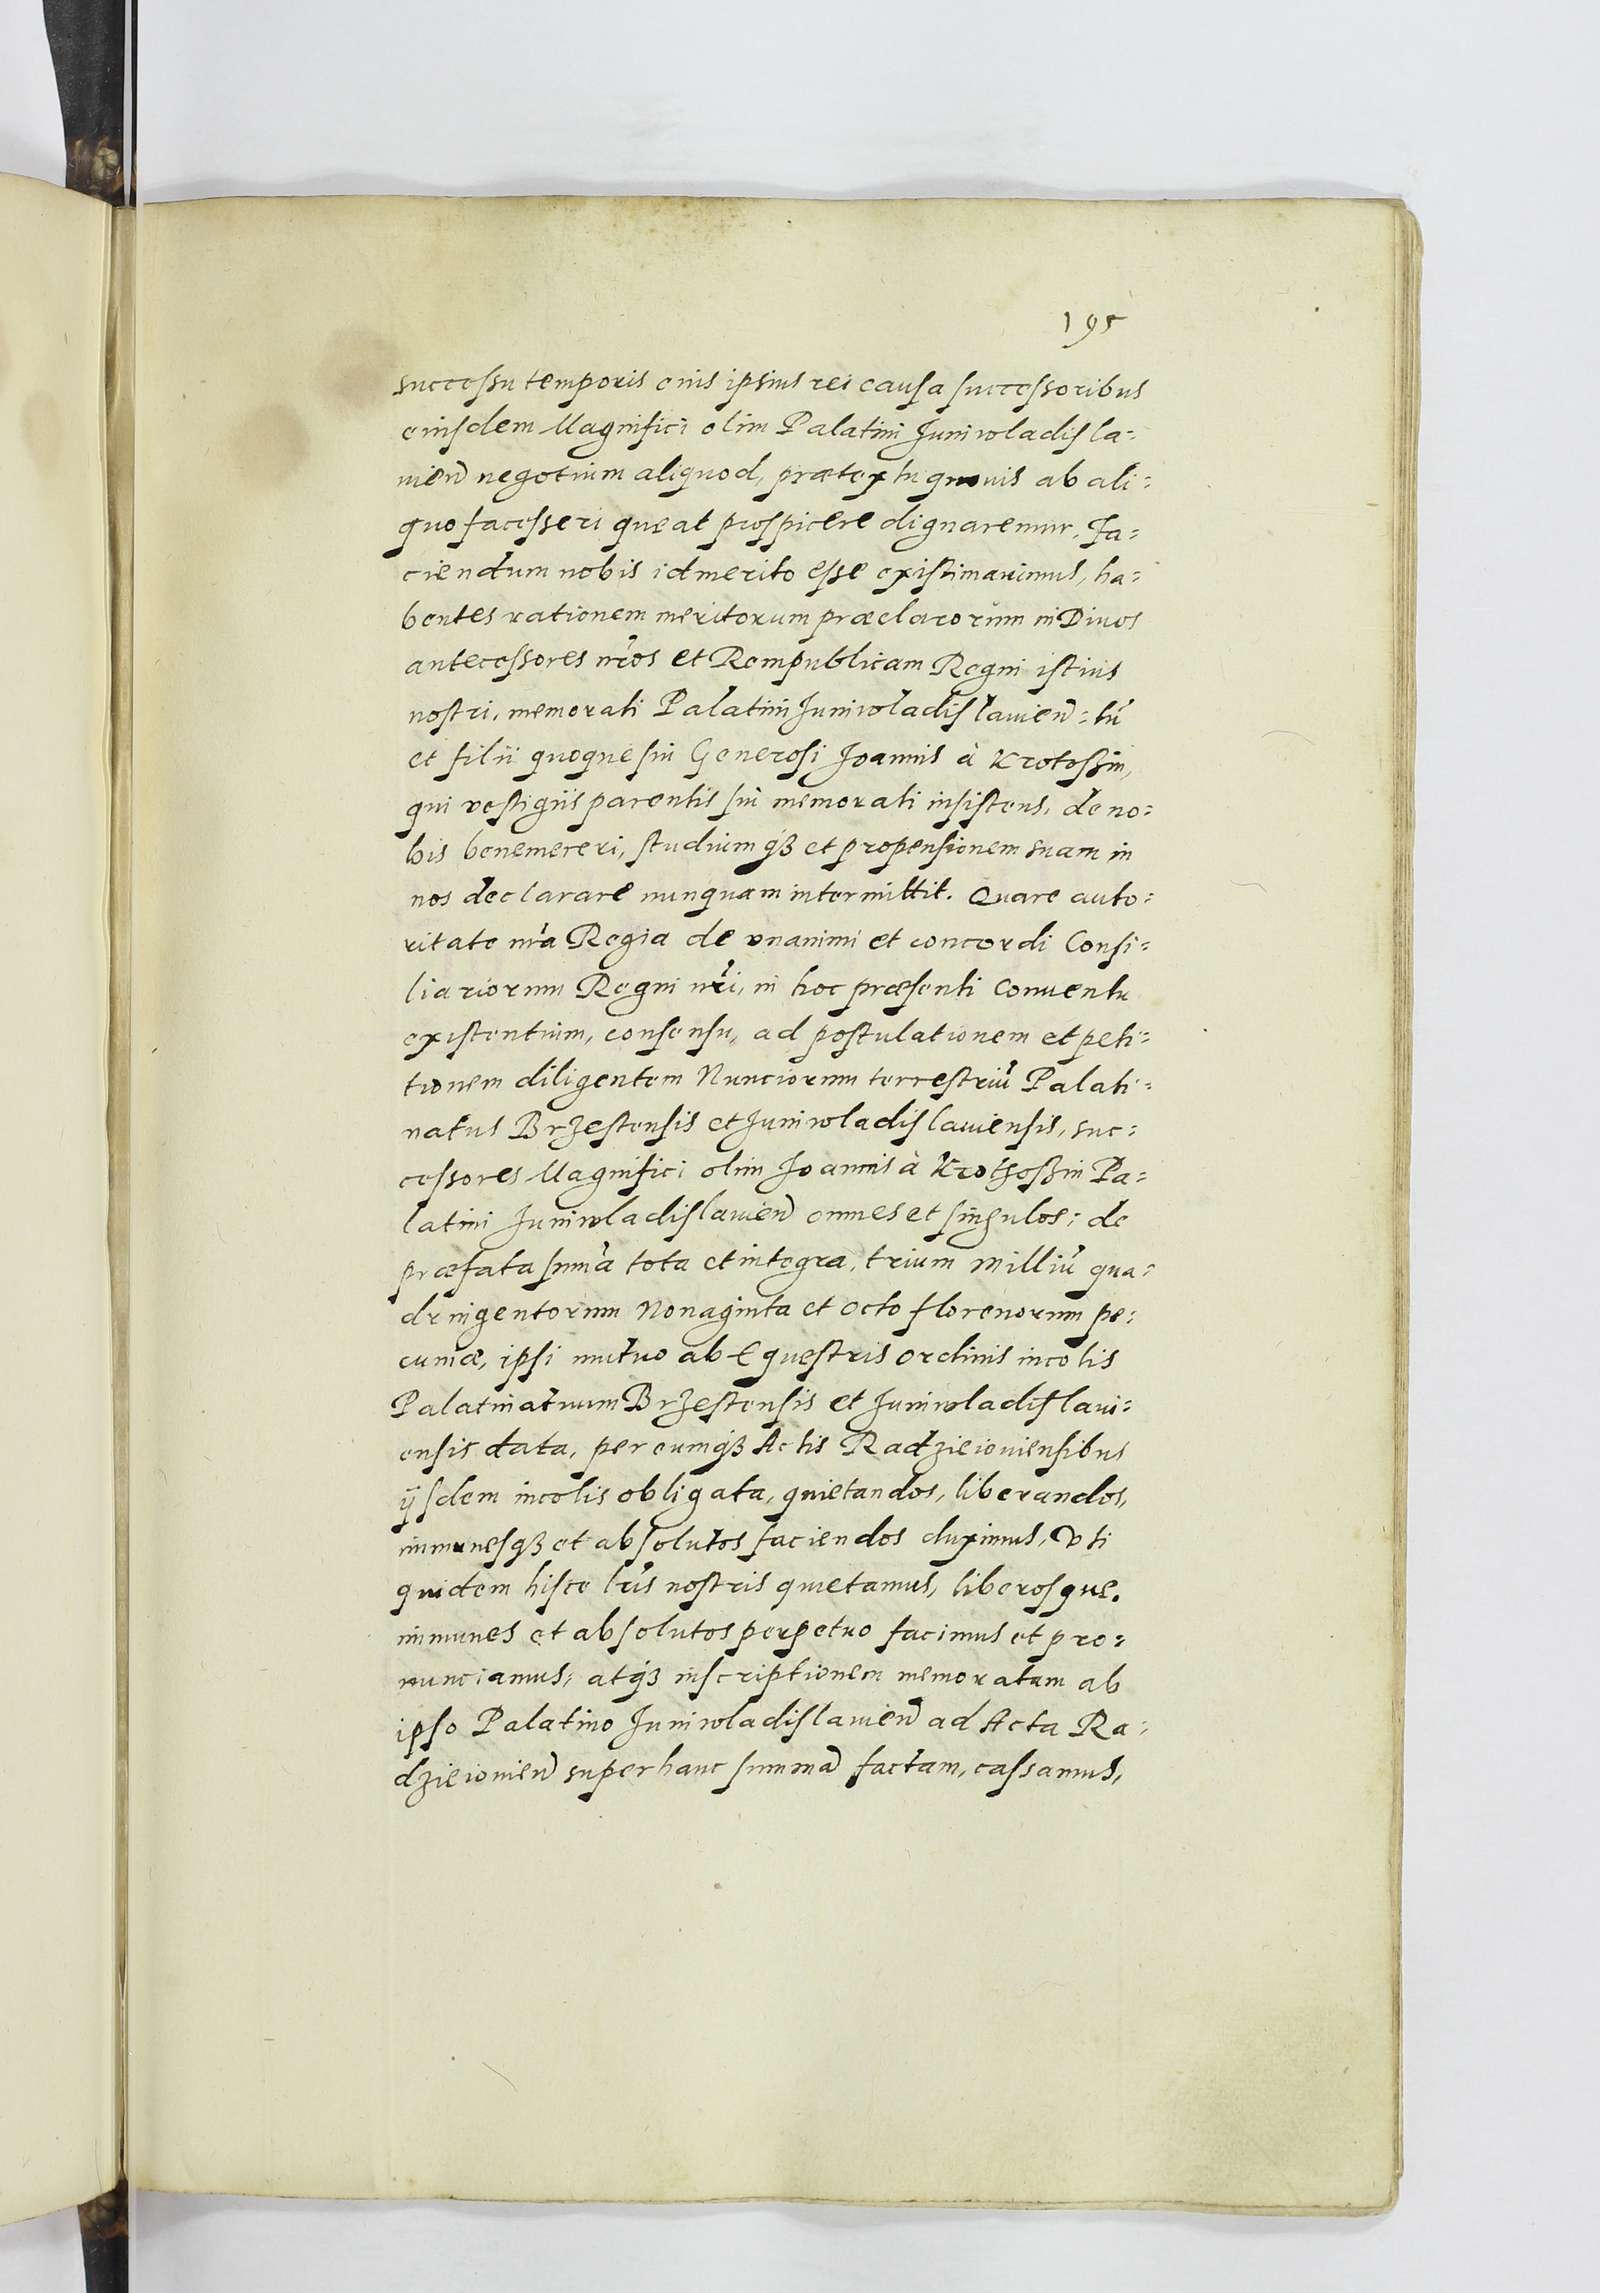 195
successu temporis eius ipsius rei causa successoribus
eiusdem Magnifici olim Palatini Juniwladisla=
vien̄ negotium aliquod, prætextu quovis ab ali=
quo facesseri queat prospicere dignaremur. Fa=
ciendum nobis id merito esse existimavimus, ha=
bentes rationem meritorum præclarorum in Divos
antecessores nr̃os et Rempublicam Regni istius
nostri, memorati Palatini Juniwladislavien̄: tū
et filii quoque sui Generosi Joannis à Krotoszin,
qui vestigiis parentis sui memorati insistens, de no=
bis benemereri, studiumq́ꝫ et propensionem suam in
nos declarare nunquam intermittit. Quare auto=
ritate nr̃a Regia de vnanimi et concordi Consi=
liariorum Regni nr̃i, in hoc præsenti Conventu
existentium, consensu, ad postulationem et peti=
tionem diligentem Nunciorum terrestriū Palati=
natus Brzestensis et Juniwladislaviensis, suc=
cessores Magnifici olim Joannis à Krothoszin Pa=
latini Juniwladislavien̄ omnes et singulos; de
præfata sum̄a tota et integra, trium milliū qua=
dringentorum Nonaginta et octo florenorum pe=
cuniæ, ipsi mutuo ab Equestris ordinis incolis
Palatinatuum Brzestensis et Juniwladislavi=
ensis data, per eumq́ꝫ Actis Radzieioviensibus
ijsdem incolis obligata, quietandos, liberandos,
immunesq́ꝫ et absolutos faciendos duximus, Vti
quidem hisce lr̃is nostris quietamus, liberosque.
immunes et absolutos perpetuo facimus et pro=
nunciamus; atq́ꝫ inscriptionem memoratam ab
ipso Palatino Juniwladislavien̄ ad Acta Ra=
dzieiovien̄ super hanc summā factam, cassamus,